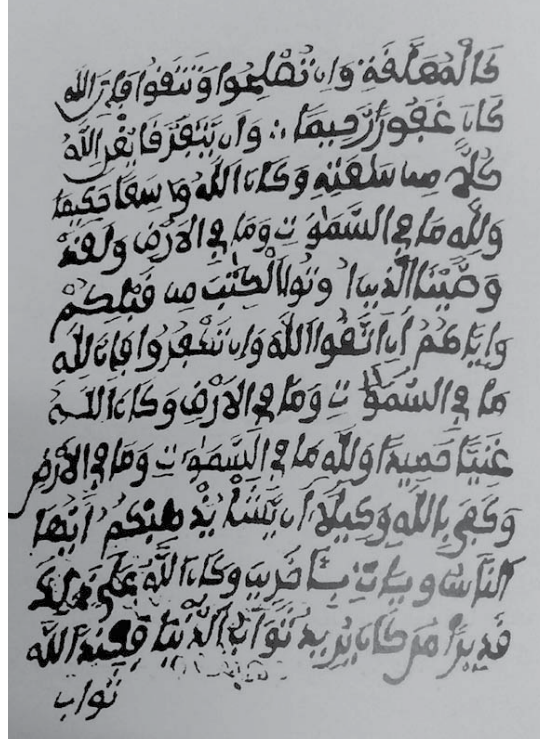 كَالْمُعَلَّقَةِ وَإِن تُصْلِحُوا وَتَتَّقُوا فَإِنَّ اللَّهَ
كَانَ غَفُورًا رَّحِيمًا ∴ وَإِن يَتَفَرَّقَا يُغْنِ اللَّهُ
كُلًّا مِّن سَعَتِهِ وَكَانَ اللَّهُ وَاسِعًا حَكِيمًا
وَلِلَّهِ مَا فِي السَّمَٰوَٰتِ وَمَا فِي الْأَرْضِ وَلَقَدْ
وَصَّيْنَا الَّذِينَ أُوتُوا الْكِتَٰبَ مِن قَبْلِكُمْ
وَإِيَّاكُمْ أَنِ اتَّقُوا اللَّهَ وَإِن تَكْفُرُوا فَإِنَّ لِلَّهِ
مَا فِي السَّمَٰوَٰتِ وَمَا فِي الْأَرْضِ وَكَانَ اللَّهُ
غَنِيًّا حَمِيدًا وَلِلَّهِ مَا فِي السَّمَٰوَٰتِ وَمَا فِي الْأَرْضِ
وَكَفَىٰ بِاللَّهِ وَكِيلًا إِن يَشَأْ يُذْهِبْكُمْ أَيُّهَا
النَّاسُ وَيَأْتِ بِـَٔاخَرِينَ وَكَانَ اللَّهُ عَلَىٰ ذَٰلِكَ
قَدِيرًا مَّن كَانَ يُرِيدُ ثَوَابَ الدُّنْيَا فَعِندَ اللَّهِ
ثَوَابُ